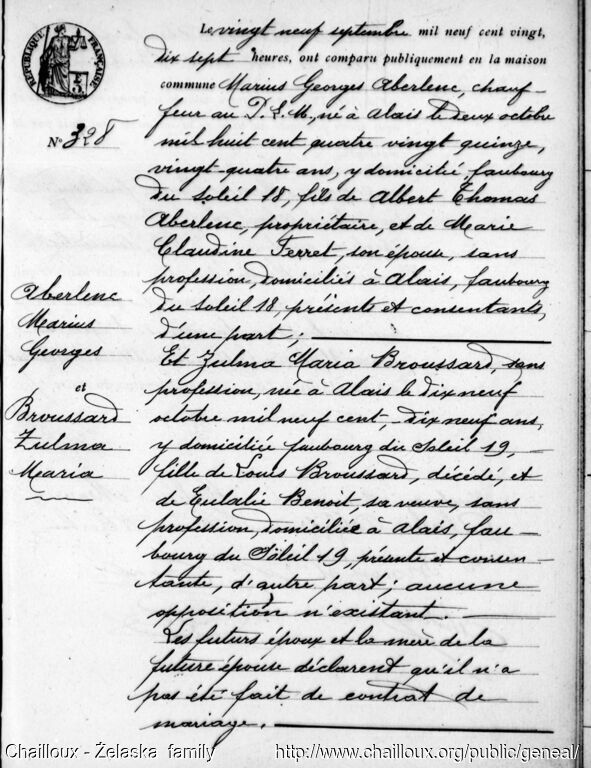 RÉPUBLIQUE FRANÇAISE
Le vingt neuf septembre mil neuf cent vingt,
dix sept heures, ont comparu publiquement en la maison
commune Marius Georges Aberlenc, chauf-
feur au P. L. M., né à Alais le deux octobre
mil huit cent quatre vingt quinze,
vingt-quatre ans, y domicilié faubourg
du Soleil 18, fils de Albert Thomas
Aberlenc, propriétaire, et de Marie
Claudine Ferret, son épouse, sans
profession, domiciliés à Alais, faubourg
du Soleil 18, présents et consentants,
d'une part;
Et Zulma Maria Broussard, sans
profession, née à Alais le dix neuf
octobre mil neuf cent, dix neuf ans,
y domiciliée faubourg du Soleil 19,
fille de Louis Broussard, décédé, et
de Eulalie Benoit, sa veuve, sans
profession, domiciliée à Alais, fau-
bourg du Soleil 19, présente et consen-
tante, d'autre part; aucune
opposition n'existant.
Les futurs époux et la mère de la
future épouse déclarent qu'il n'a
pas été fait de contrat de
mariage.
N° 328
Aberlenc
Marius
Georges
et
Broussard
Zulma
Maria
Chailloux - Żelaska family
http://www.chailloux.org/public/geneal/